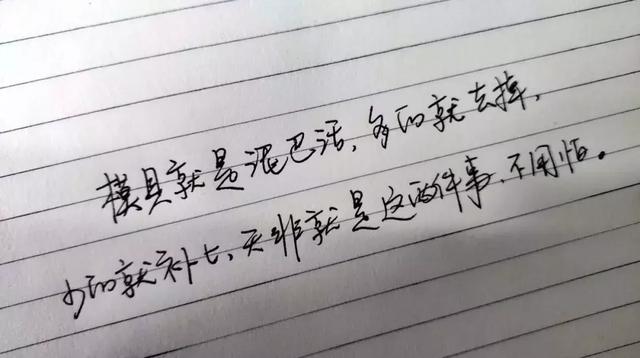 模具就是泥巴活，多的就去掉，
少的就补上，无非就是这两件事，不用怕。